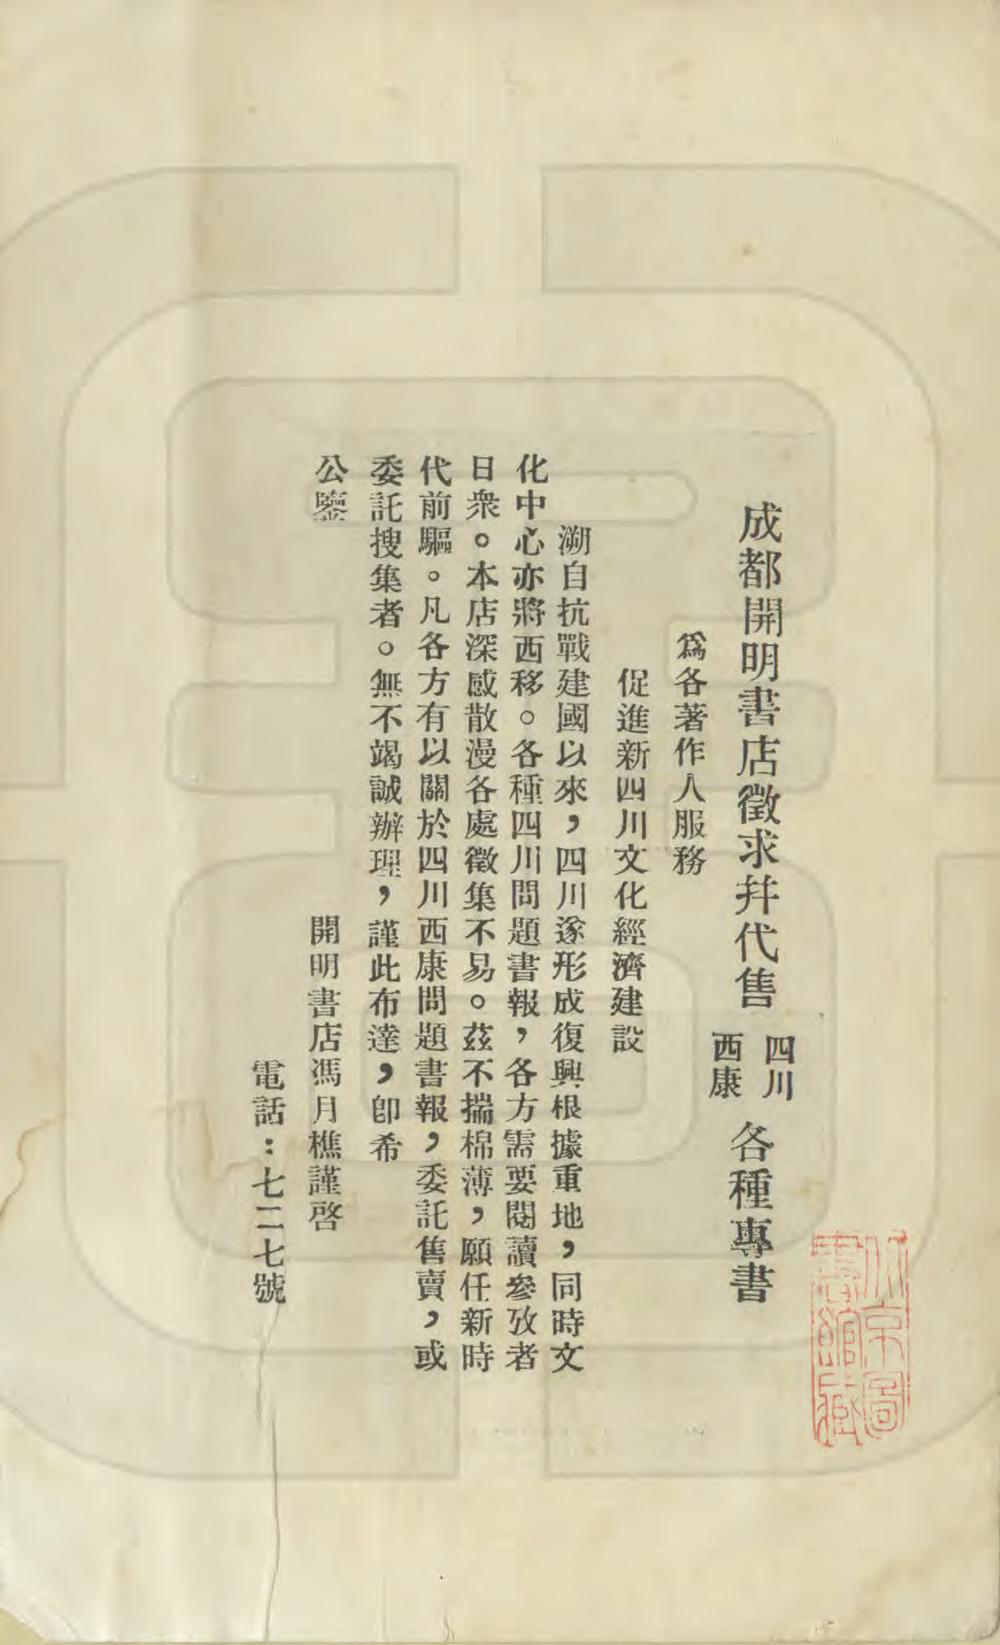 成都開明書店徵求幷代售四川西康各種專書
爲各著作人服務
促進新四川文化經濟建設
溯自抗戰建國以來，四川遂形成復興根據重地，同時文
化中心亦將西移。各種四川問題書報，各方需要閱讀參攷者
日衆。本店深感散漫各處徵集不易。茲不揣棉薄，願任新時
代前驅。凡各方有以關於四川西康問題書報，委託售賣，或
委託搜集者。無不竭誠辦理，謹此布達，卽希
公鑒
開明書店馮月樵謹啓
電話：七二七號
北京圖書館藏